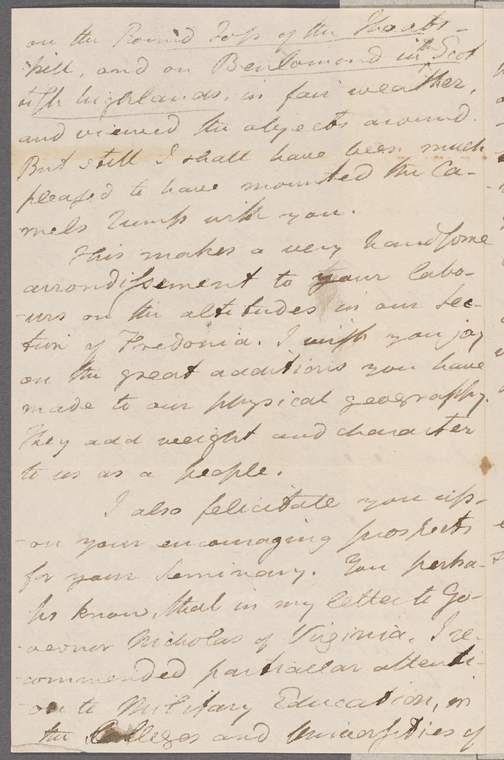 on the Round Top of the
hill, and on Benlomond in the Scot
tish highlands, in fair weather,
and viewed the objects around.
But still I shall have been much
pleased to have mounted the Ca-
mels Rump with you.
This makes a very handsome
arrondissement to your labo-
urs on the altitudes in our Sec-
tion of Fredonia. I wish you joy
on the great additions you have
made to our physical geography.
They add weight and character
to us as a people.
I also felicitate you up-
on your encouraging prospects
for your Seminary. You perha-
ps know, that in my letter to Go-
vernor Nicholas of Virginia, I re-
commended particular attenti-
on to Military Education, in
the Colleges and Universities of